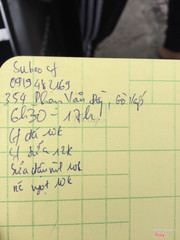 Subeo cf
0919482169
354 Phan Văn Trị, Gò Vấp
6h30 - 17h!
Cf đá 10k
Cf sữa 12k
Sữa đậu nành 10k
nc ngọt 10k